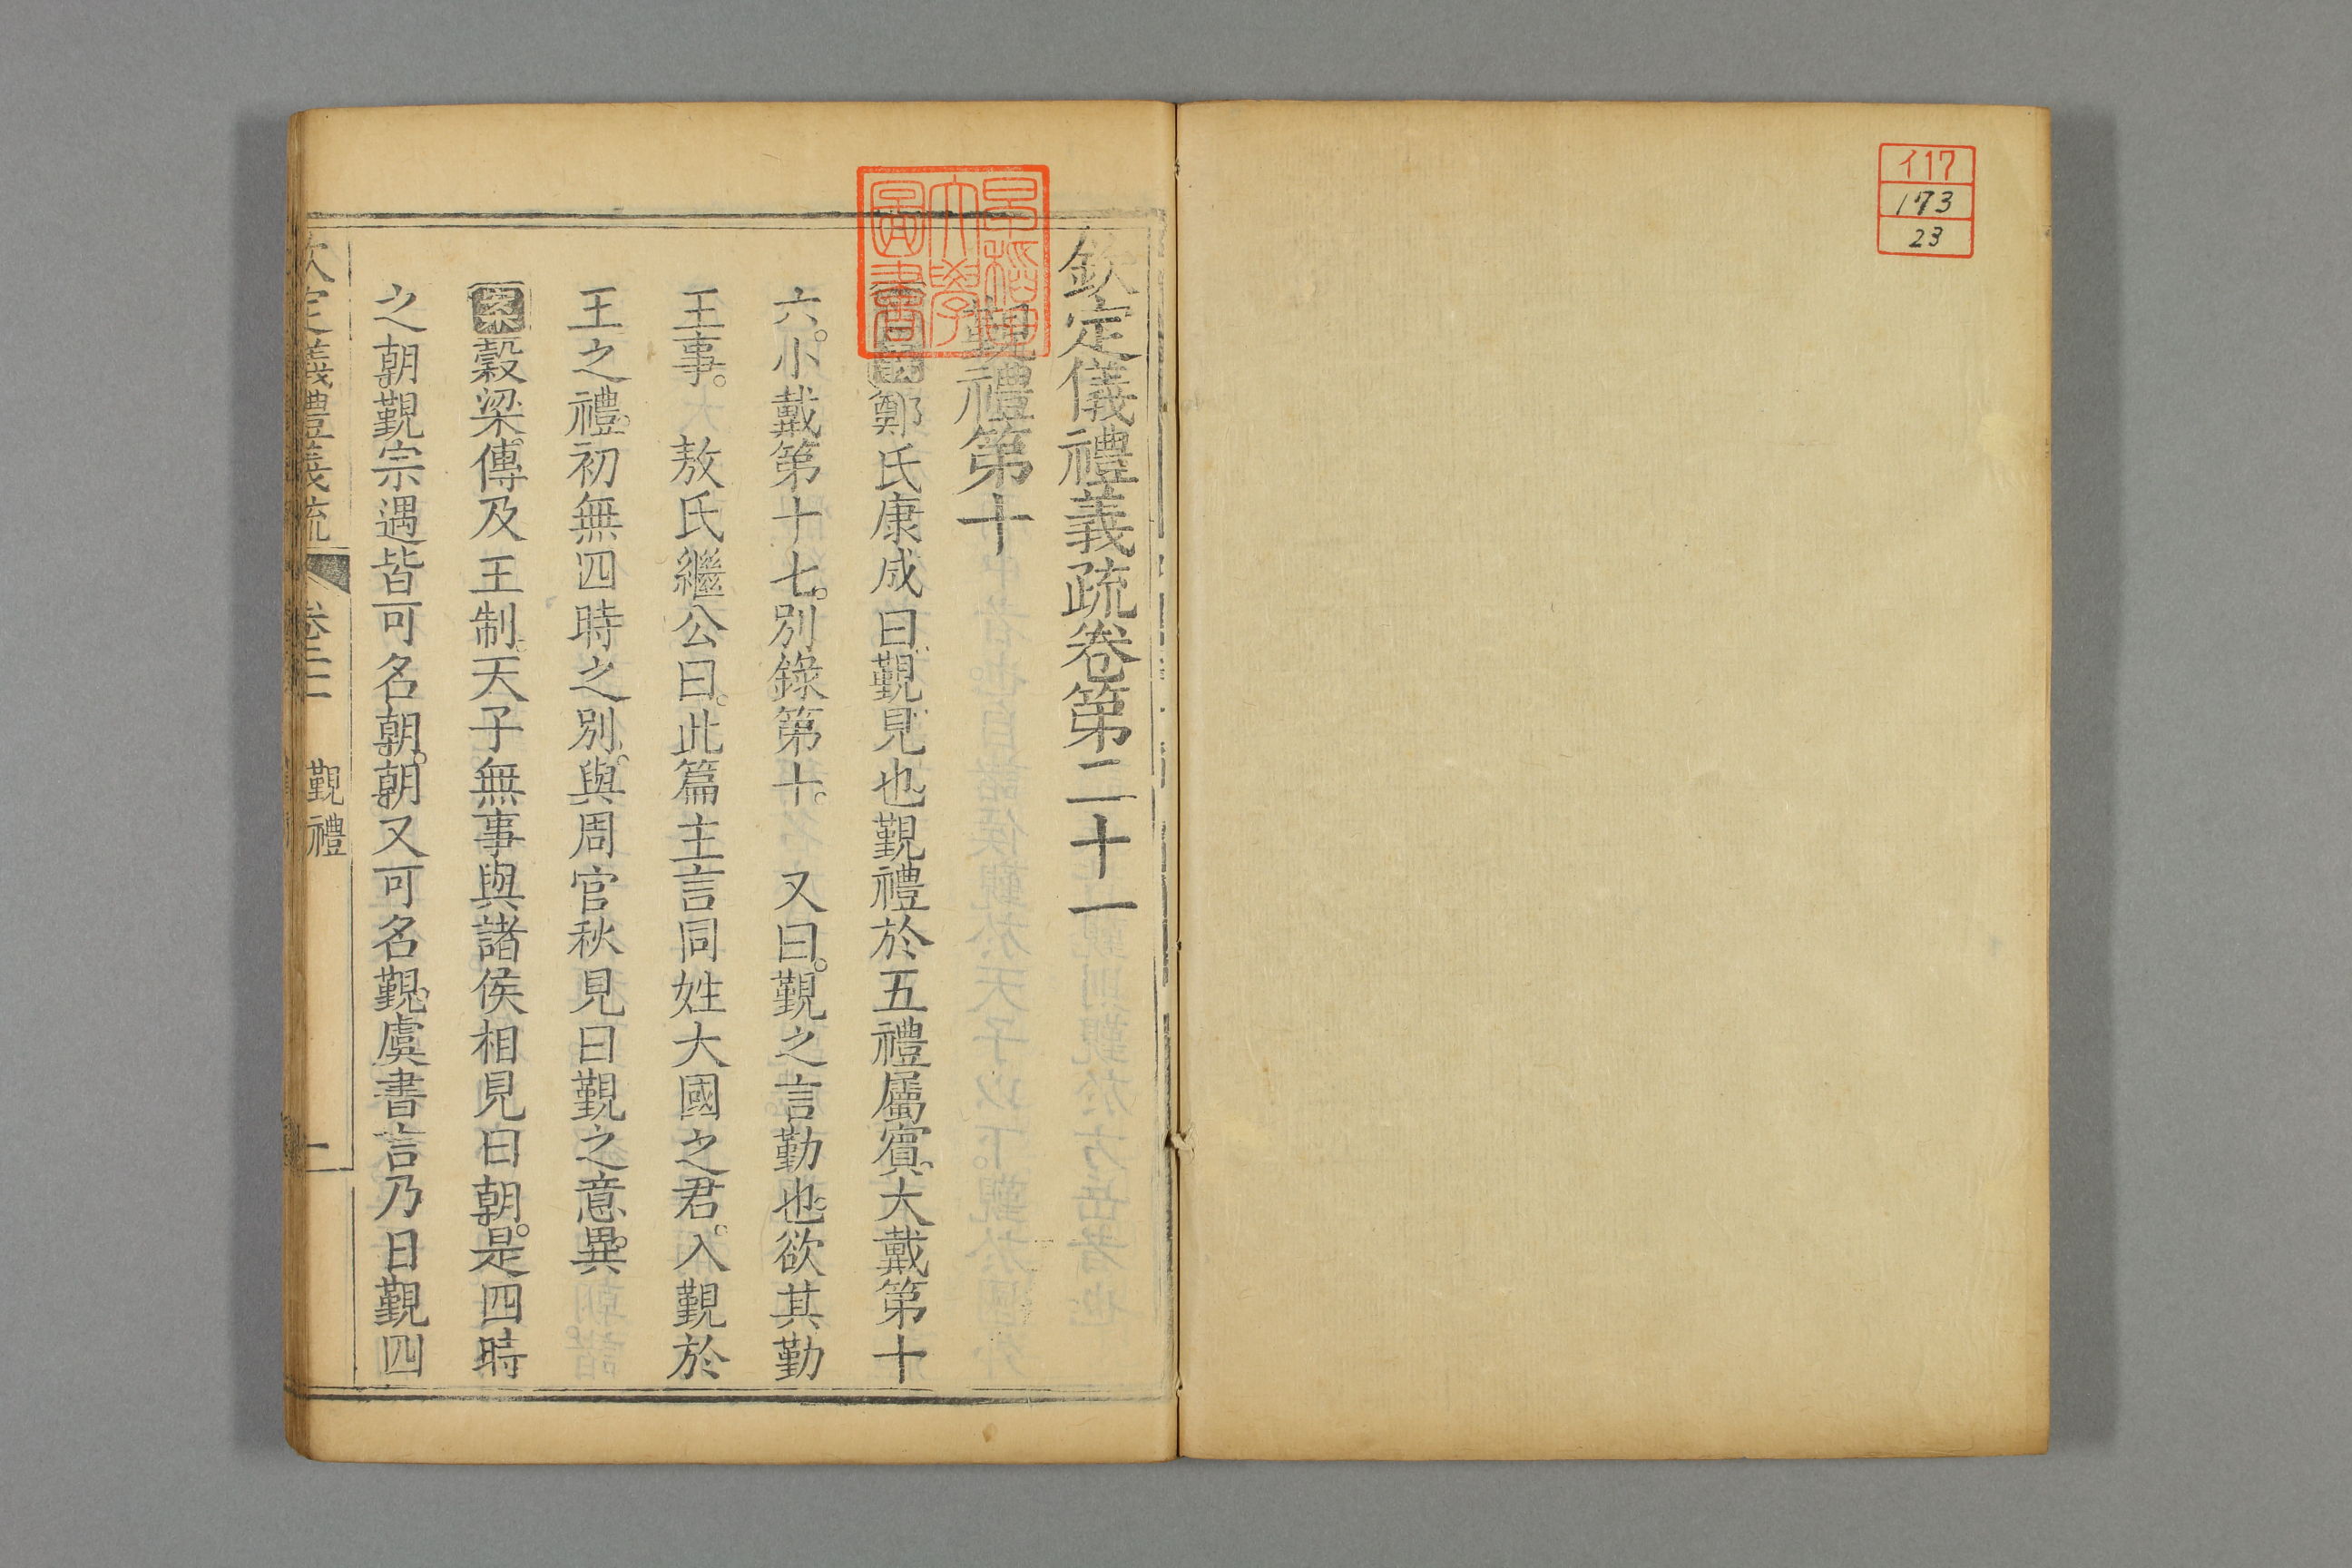 イ17
173
23
欽定儀禮義疏卷第二十一
覲禮第十
鄭氏康成曰覲見也覲禮於五禮屬賓大戴第十
六。小戴第十七。別錄第十。 又曰。覲之言勤也。欲其勤
王事。 敖氏繼公曰。此篇主言同姓大國之君。入覲於
王之禮。初無四時之別。與周官秋見曰覲之意異。
案穀梁傳及王制。天子無事與諸侯相見曰朝。是四時
之朝覲宗遇皆可名朝。朝又可名覲。虞書言乃日覲四
欽定義禮義疏 卷二十一 覲禮 一
早稻田大學圖書